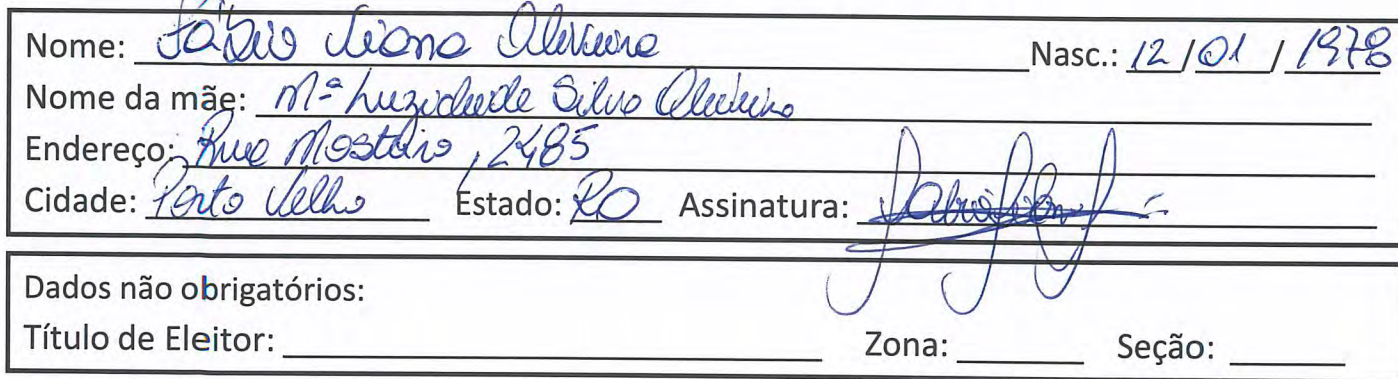 Nome: Fábio Viana Oliveira Nasc.: 12/01/1978
Nome da mãe: Mª Luzidade Silva Oliveira
Endereço: Rua Mostário, 2485
Cidade: Porto Velho Estado: RO Assinatura:
Dados não obrigatórios:
Título de Eleitor: Zona: Seção: